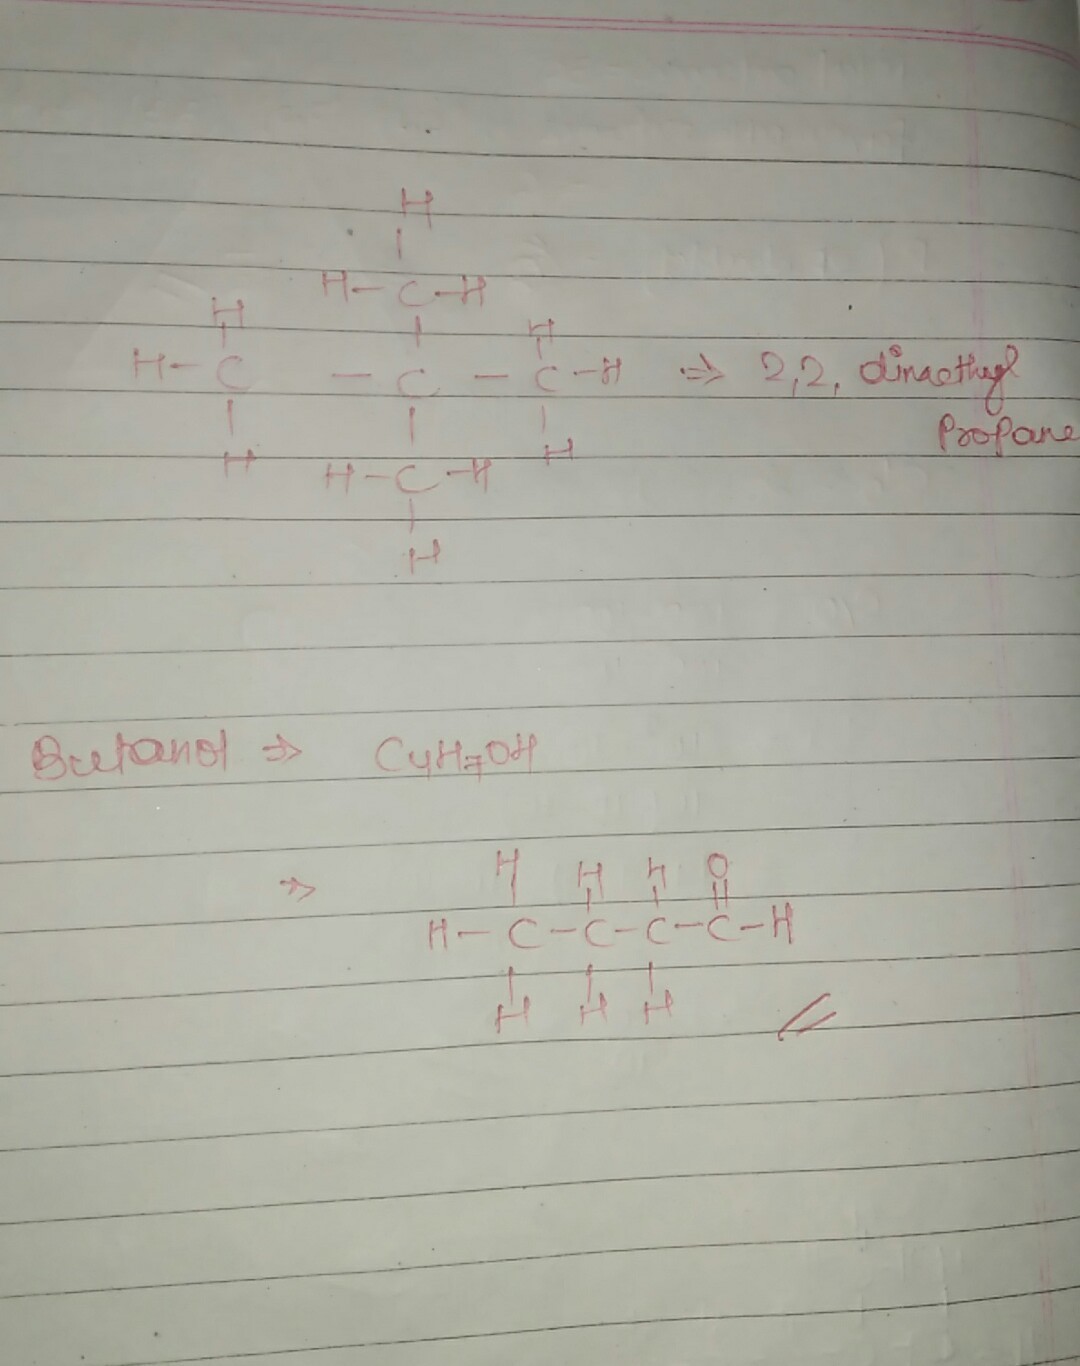 H
|
H- C -H
H | H
H- C - C - C -H ⇒ 2,2, dimethyl
| | | Propane
H H-C-H H
|
H
Butanol ⇒ C4H7OH
⇒ H H H O
| | | ||
H- C -C-C-C-H
| | |
H H H